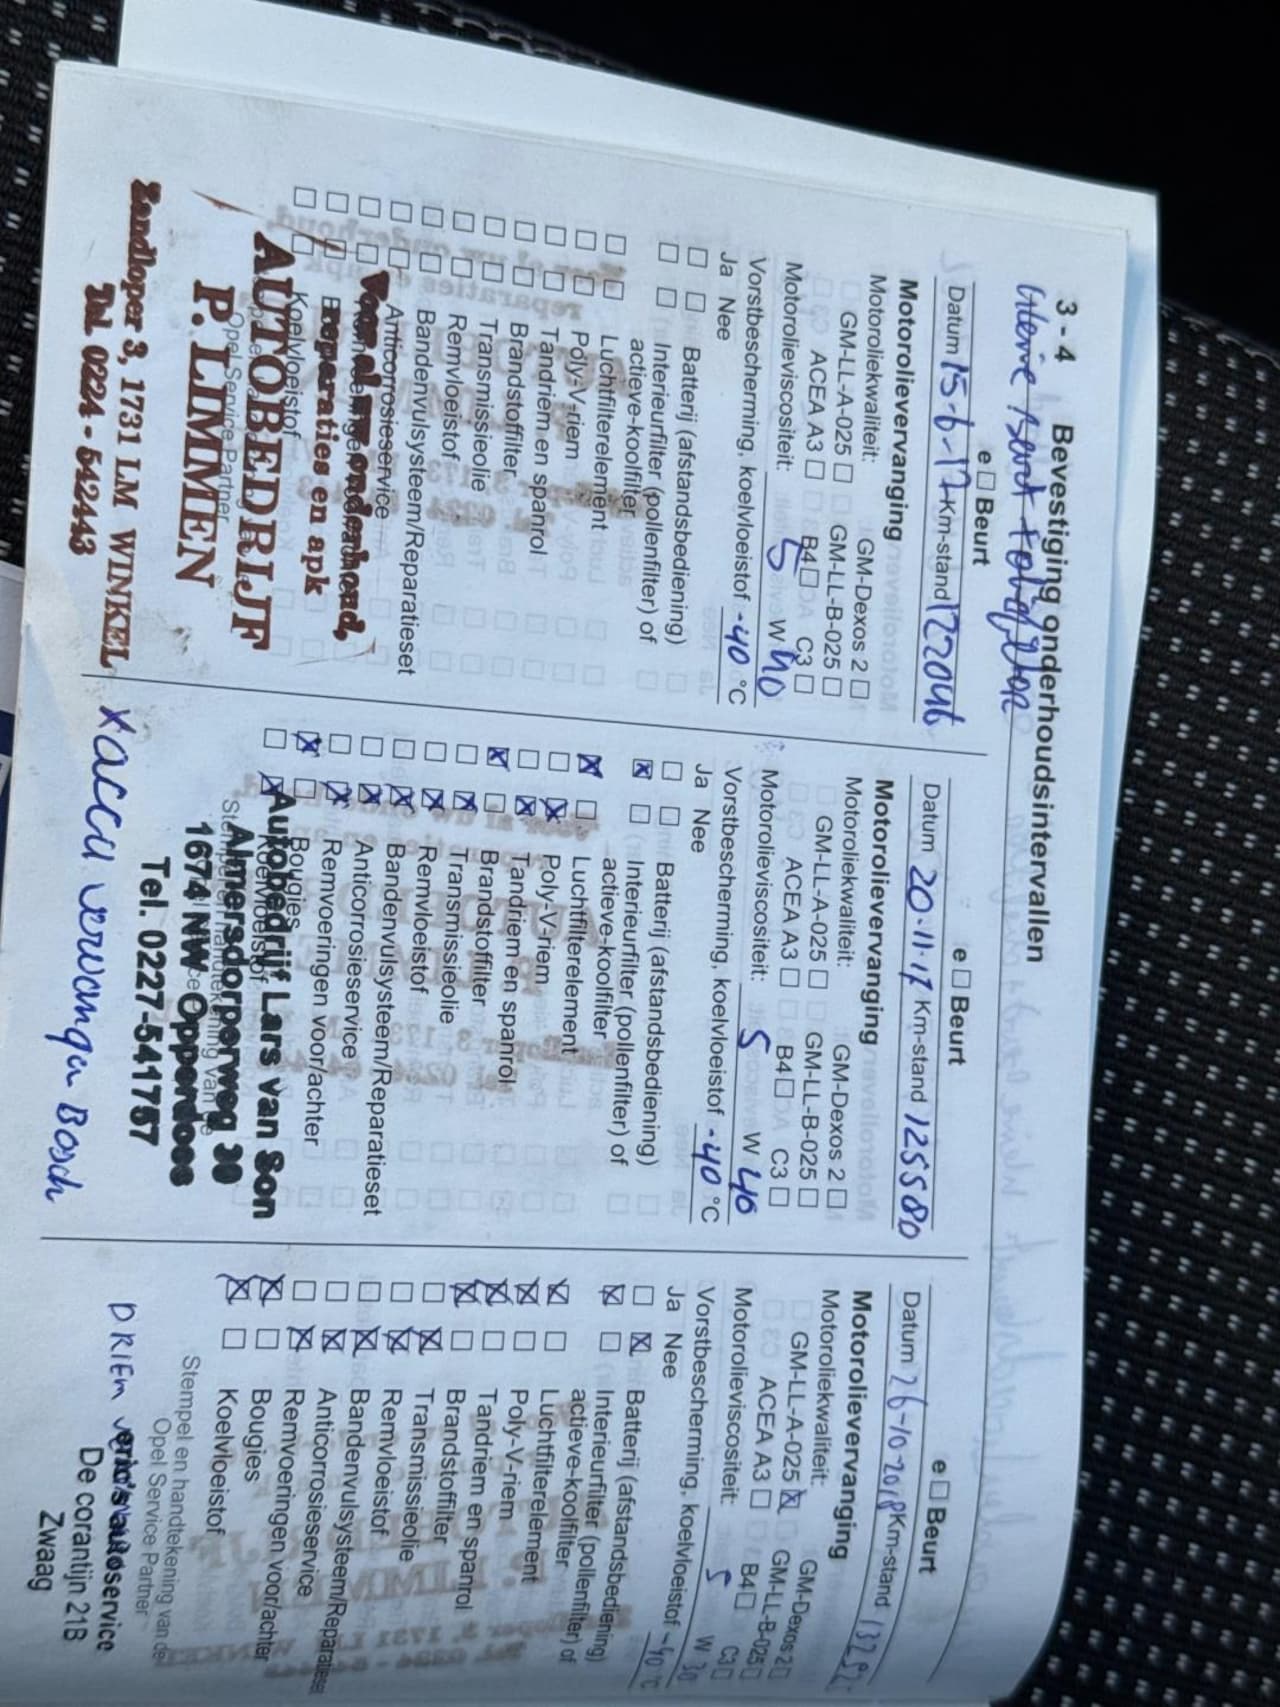 3 - 4 Bevestiging onderhoudsintervallen
e □ Beurt
Datum 15-6-17 Km-stand 122046
Motorolievervanging
Motoroliekwaliteit: GM-Dexos 2 □
GM-LL-A-025 □ GM-LL-B-025 □
ACEA A3 □ B4 □ C3 □
Motorolieviscositeit: 5 W 40
Vorstbescherming, koelvloeistof -40 °C
Ja Nee
□ □ Batterij (afstandsbediening)
□ □ Interieurfilter (pollenfilter) of
actieve-koolfilter
□ □ Luchtfilterelement
□ □ Poly-V-riem
□ □ Tandriem en spanrol
□ □ Brandstoffilter
□ □ Transmissieolie
□ □ Remvloeistof
□ □ Bandenvulsysteem/Reparatieset
□ □ Anticorrosieservice
□ □ Koelvloeistof
Opel Service Partner
Voor al uw onderhoud,
Reparaties en apk
AUTOBEDRIJF
P. LIMMEN
Zandloper 3, 1731 LM WINKEL
Tel. 0224 - 542443
e □ Beurt
Datum 20-11-17 Km-stand 125580
Motorolievervanging
Motoroliekwaliteit: GM-Dexos 2 □
GM-LL-A-025 □ GM-LL-B-025 □
ACEA A3 □ B4 □ C3 □
Motorolieviscositeit: 5 W 40
Vorstbescherming, koelvloeistof -40 °C
Ja Nee
□ □ Batterij (afstandsbediening)
☒ □ Interieurfilter (pollenfilter) of
actieve-koolfilter
☒ □ Luchtfilterelement
□ ☒ Poly-V-riem
□ ☒ Tandriem en spanrol
☒ □ Brandstoffilter
□ ☒ Transmissieolie
□ ☒ Remvloeistof
□ ☒ Bandenvulsysteem/Reparatieset
□ ☒ Anticorrosieservice
□ ☒ Remvoeringen voor/achter
☒ □ Bougies
□ ☒ Koelvloeistof
Autobedrijf Lars van Son
Almersdorperweg 30
1674 NW Opperdoes
Tel. 0227-541757
x accu vervangen Bosch
e □ Beurt
Datum 26-10-2018 Km-stand
Motorolievervanging
Motoroliekwaliteit: GM-Dexos 2 □
GM-LL-A-025 ☒ GM-LL-B-025 □
ACEA A3 □ B4 □ C3 □
Motorolieviscositeit: 5 W 30
Vorstbescherming, koelvloeistof -40 °C
Ja Nee
□ ☒ Batterij (afstandsbediening)
☒ □ Interieurfilter (pollenfilter) of
actieve-koolfilter
☒ □ Luchtfilterelement
☒ □ Poly-V-riem
☒ □ Tandriem en spanrol
☒ □ Brandstoffilter
□ ☒ Transmissieolie
□ ☒ Remvloeistof
□ ☒ Bandenvulsysteem/Reparatieset
□ ☒ Anticorrosieservice
□ ☒ Remvoeringen voor/achter
☒ □ Bougies
☒ □ Koelvloeistof
Stempel en handtekening van de
Opel Service Partner
De corantijn 21B
Zwaag